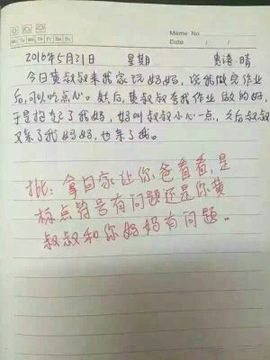 Memo No.
Mo Tu We Th Fr Sa Su
Date / /
2016年5月31日 星期 晴
今日黄叔叔来我家玩妈妈，说我做完作业
后，可以吃点心。然后，黄叔叔夸我作业做的好，
于是抱起了我妈，妈叫叔叔小心一点，之后叔叔
又亲了我妈妈，也亲了我。
批：拿回家让你爸看看，是
标点符号有问题还是你黄
叔叔和你妈妈有问题。